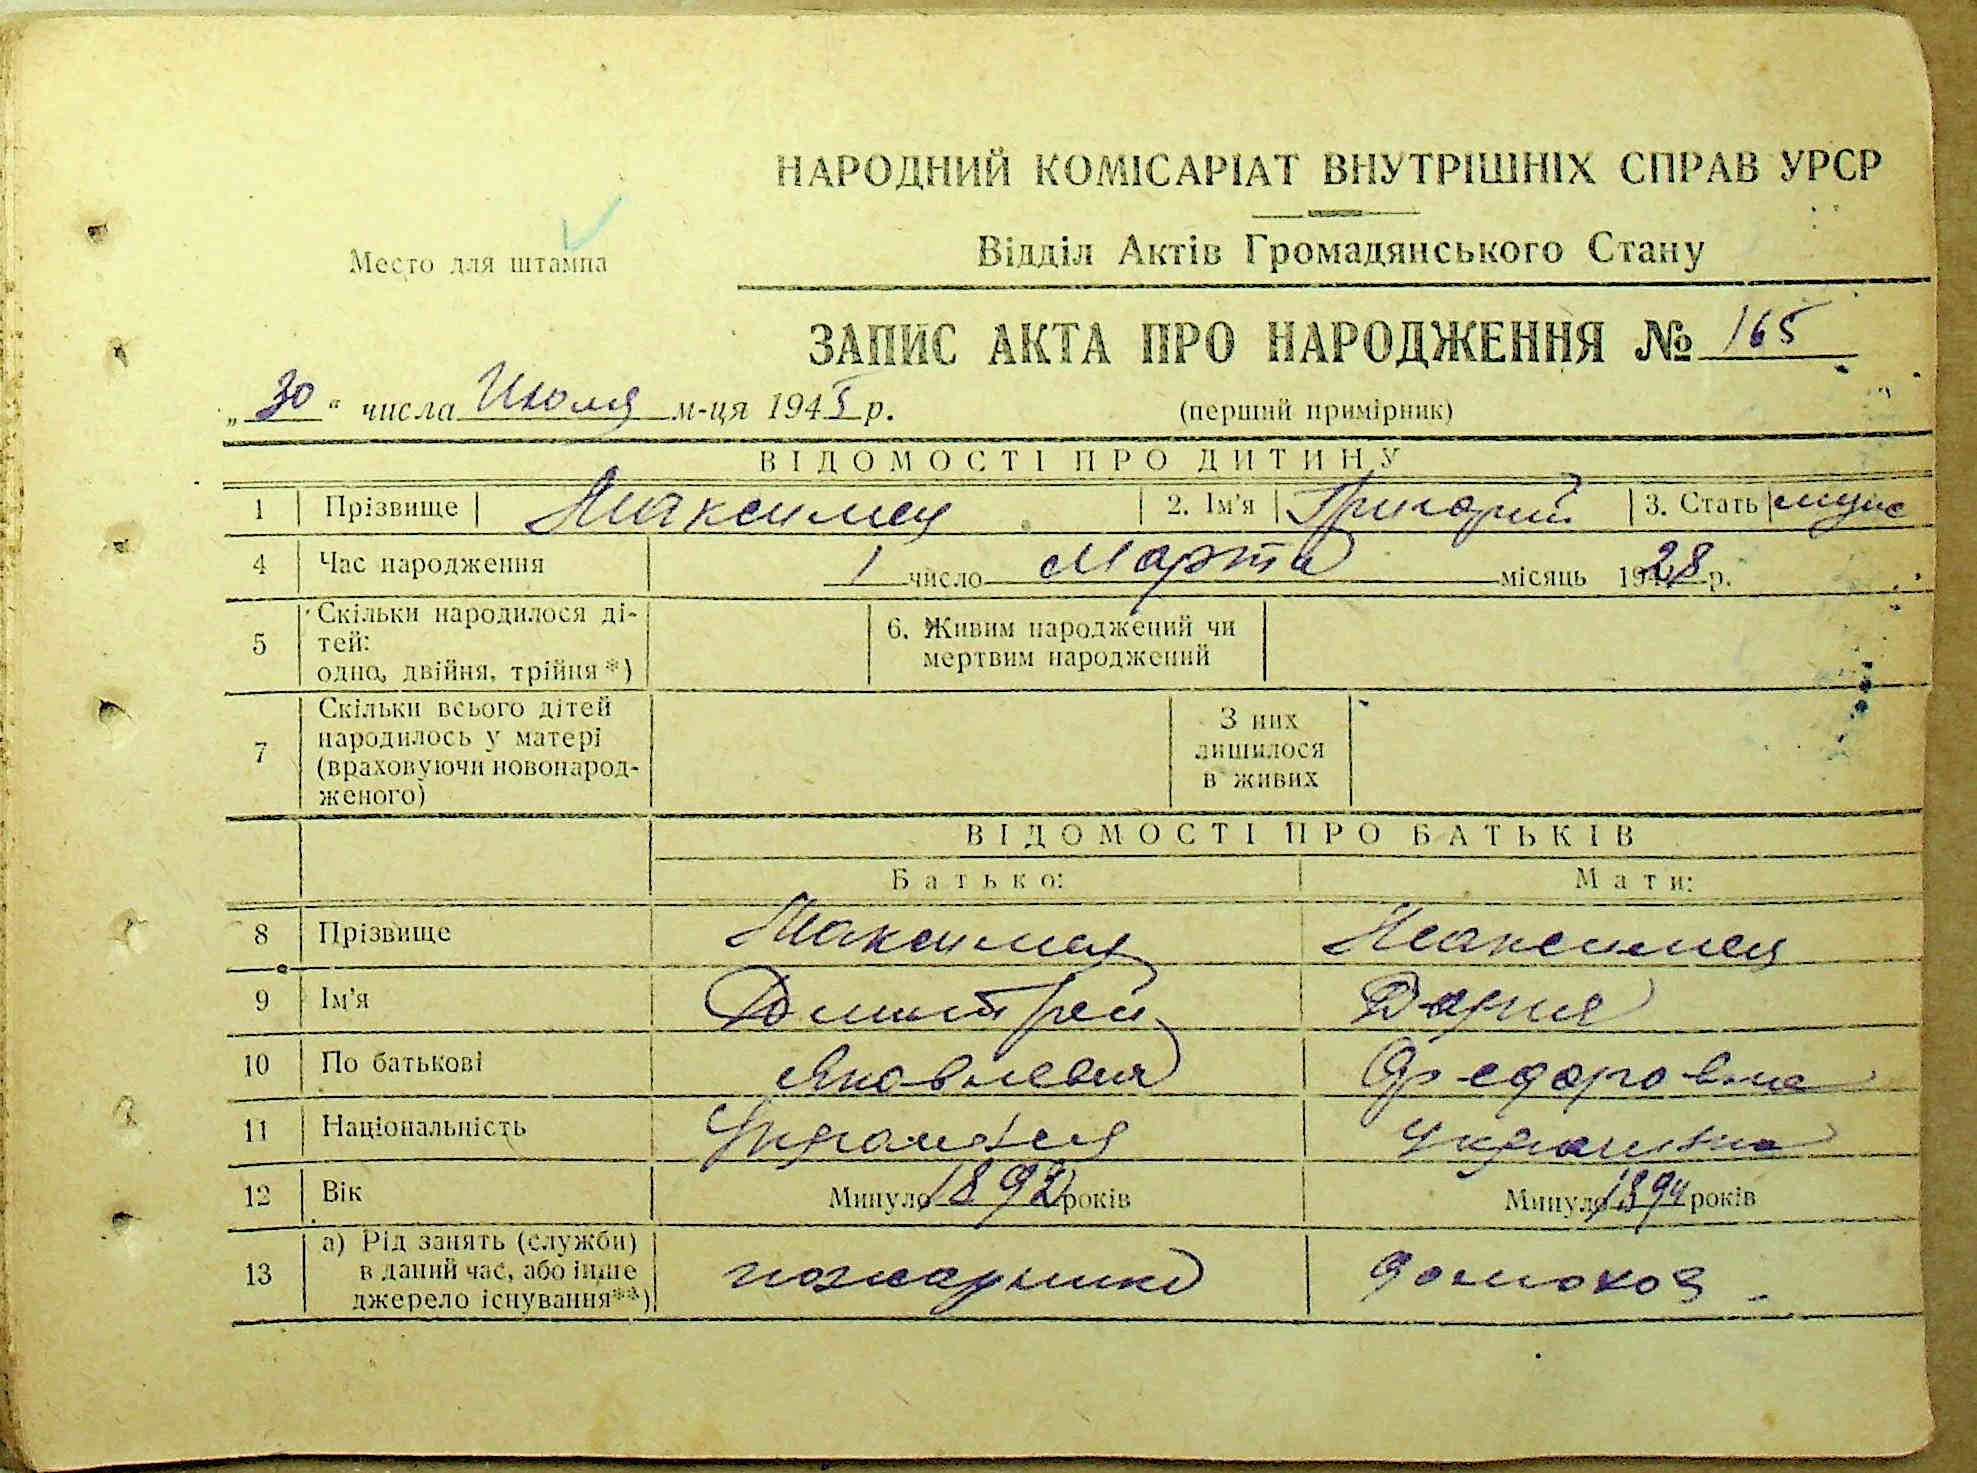 НАРОДНИЙ КОМІСАРІАТ ВНУТРІШНІХ СПРАВ УРСР
Место для штампа
Відділ Актів Громадянського Стану
ЗАПИС АКТА ПРО НАРОДЖЕННЯ № 165
„30“ числа Июля м-ця 1945 р. (перший примірник)
ВІДОМОСТІ ПРО ДИТИНУ
1 Прізвище Максимец 2. Ім'я Григорий 3. Стать муж
4 Час народження 1 число Марта місяць 1928 р.
5 Скільки народилося ді-
тей:
одно, двійня, трійня *)
6. Живим народжений чи
мертвим народжений
7 Скільки всього дітей
народилось у матері
(враховуючи новонарод-
женого)
З них
лишилося
в живих
ВІДОМОСТІ ПРО БАТЬКІВ
Батько: Мати:
8 Прізвище Максимец Максимец
9 Ім'я Дмитрий Дария
10 По батькові Яковлевич Федоровна
11 Національність Украинец украинка
12 Вік Минуло 1892 років Минуло 1894 років
13 а) Рід занять (служби)
в даний час, або інше
джерело існування**)
пожарник домохоз